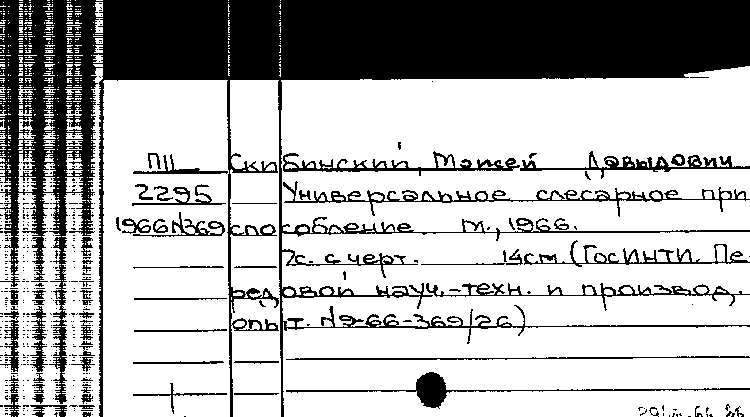 ПII Скибинский, Моисей Давыдович
2295 Универсальное слесарное при
1966N369 способление. М., 1966.
7с. с черт. 14см. (ГосИНТИ. Пе-
редовой науч.-техн. и производ.
опыт. №9-66-369/26)